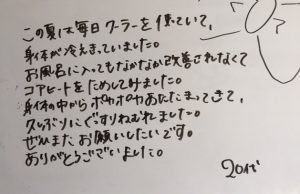 この夏は毎日クーラーを使っていて、
身体が冷えきっていました。
お風呂に入ってもなかなか改善されなくて
コアヒートをためしてみました。
身体の中からポカポカあたたまってきて、
久しぶりにぐすりねむれました。
ぜひまたお願いしたいです。
ありがとうございました。
20代